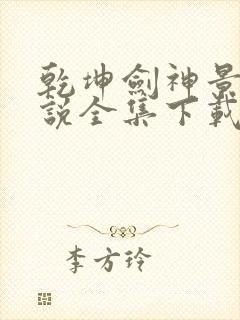 乾坤劍神景
說全集下載
李方玲